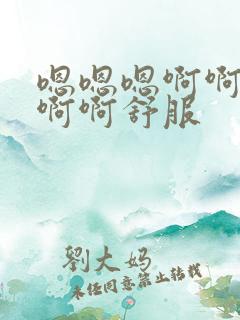 嗯嗯嗯啊啊
啊啊舒服
劉大妈
未经同意禁止转载